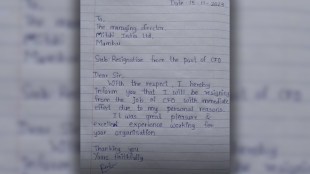 Date: 15.11.2023
To,
The managing director
Mitshi India Ltd.
Mumbai
Sub: Resignation from the post of CFO
Dear Sir,
With due respect, I hereby
inform you that I will be resigning
from the Job of CFO with immediate
effect due to my personal reasons.
It was great pleasure &
experience working for
your organisation.
Thanking you
Yours faithfully